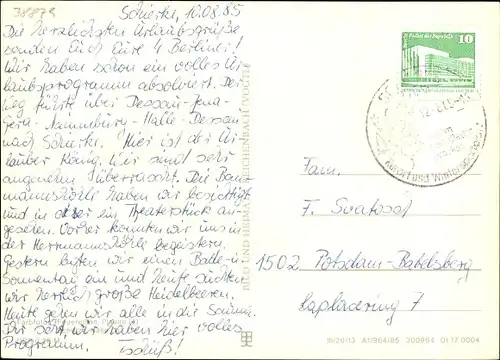 38879
Schierke, 10.08.85
Die herzlichsten Urlaubsgrüße
senden Euch Eure 4 Berliner!
Wir haben schon ein volles Ur-
laubsprogramm absolviert. Der
Weg führte über Dessau-Jena-
Gera-Naumburg-Halle-Dessau
nach Schierke. Hier ist der Ur-
lauber König. Wir sind sehr
angenehm überrascht. Die Bau-
mannshöhle haben wir besichtigt
und in ein Theaterstück an-
gesehen. Vorher konnten wir uns in
der Hermannshöhle begeistern.
Gestern hatten wir einen Balle-
Sonnentag an und heute suchten
wir herrlich große Heidelbeeren.
Heute gehen wir alle in die Sauna.
Ihr seht wir haben hier volles
Programm. Tschüß!
BILD UND HEIMAT REICHENBACH (VOGTL)
10
Kurort und Wintersportplatz
Fam.
F.
1502 Potsdam-Babelsberg
7
III/26/13 A1/964/85 300964 01 17 0004